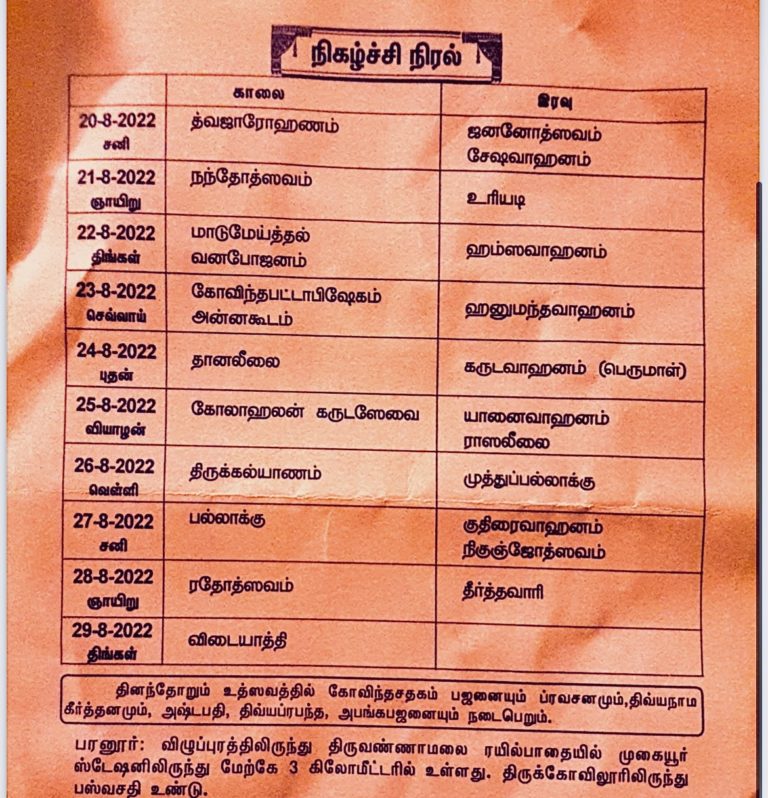 நிகழ்ச்சி நிரல்
காலை இரவு
20-8-2022 த்வஜாரோஹணம் ஜனனோத்ஸவம்
சனி சேஷவாஹனம்
21-8-2022 நந்தோத்ஸவம் உரியடி
ஞாயிறு
22-8-2022 மாடுமேய்த்தல் ஹம்ஸவாஹனம்
திங்கள் வனபோஜனம்
23-8-2022 கோவிந்தபட்டாபிஷேகம் ஹனுமந்தவாஹனம்
செவ்வாய் அன்னகூடம்
24-8-2022 தானலீலை கருடவாஹனம் (பெருமாள்)
புதன்
25-8-2022 கோலாஹலன் கருடஸேவை யானைவாஹனம்
வியாழன் ராஸலீலை
26-8-2022 திருக்கல்யாணம் முத்துப்பல்லாக்கு
வெள்ளி
27-8-2022 பல்லாக்கு குதிரைவாஹனம்
சனி நிகுஞ்ஜோத்ஸவம்
28-8-2022 ரதோத்ஸவம் தீர்த்தவாரி
ஞாயிறு
29-8-2022 விடையாத்தி
திங்கள்
தினந்தோறும் உத்ஸவத்தில் கோவிந்தசதகம் பஜனையும் ப்ரவசனமும்,திவ்யநாம
கீர்த்தனமும், அஷ்டபதி, திவ்யப்ரபந்த, அபங்கபஜனையும் நடைபெறும்.
பரனூர்: விழுப்புரத்திலிருந்து திருவண்ணாமலை ரயில்பாதையில் முகையூர்
ஸ்டேஷனிலிருந்து மேற்கே 3 கிலோமீட்டரில் உள்ளது. திருக்கோவிலூரிலிருந்து
பஸ்வசதி உண்டு.